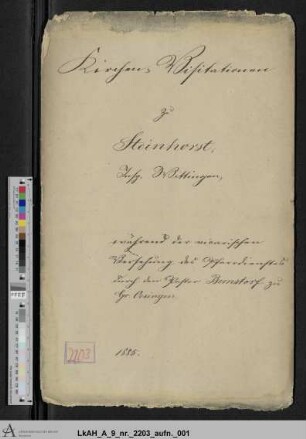 Kirchen-Visitationen
zu
Steinhorst,
Insp. Wittingen,
während der vicarischen
Versehung des Pfarrdienstes
durch den Pastor Bernstorf zu
Gr. Oesingen.
2203
1885.
LkAH_A_9_nr._2203_aufn._001